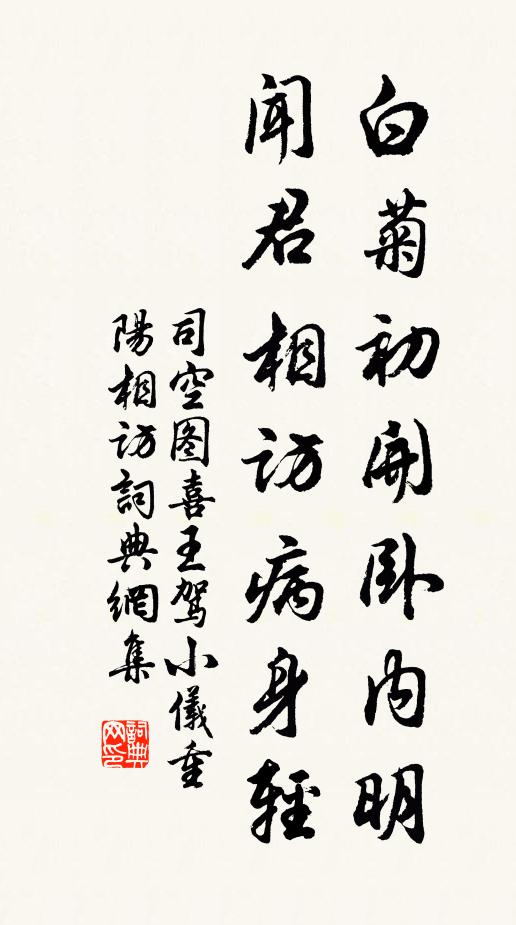 白菊初開卧内明
聞君相訪病身輕
司空图喜王駕小儀重
陽相訪詞典網集
詞典網印